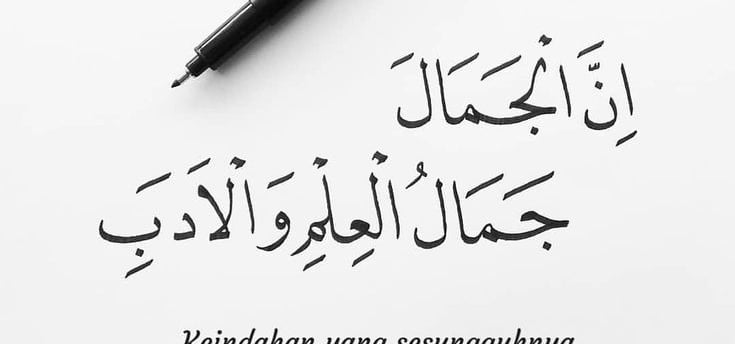 إِنَّ الْجَمَالَ
جَمَالُ الْعِلْمِ وَالْاَدَبِ
Keindahan yang sesungguhnya